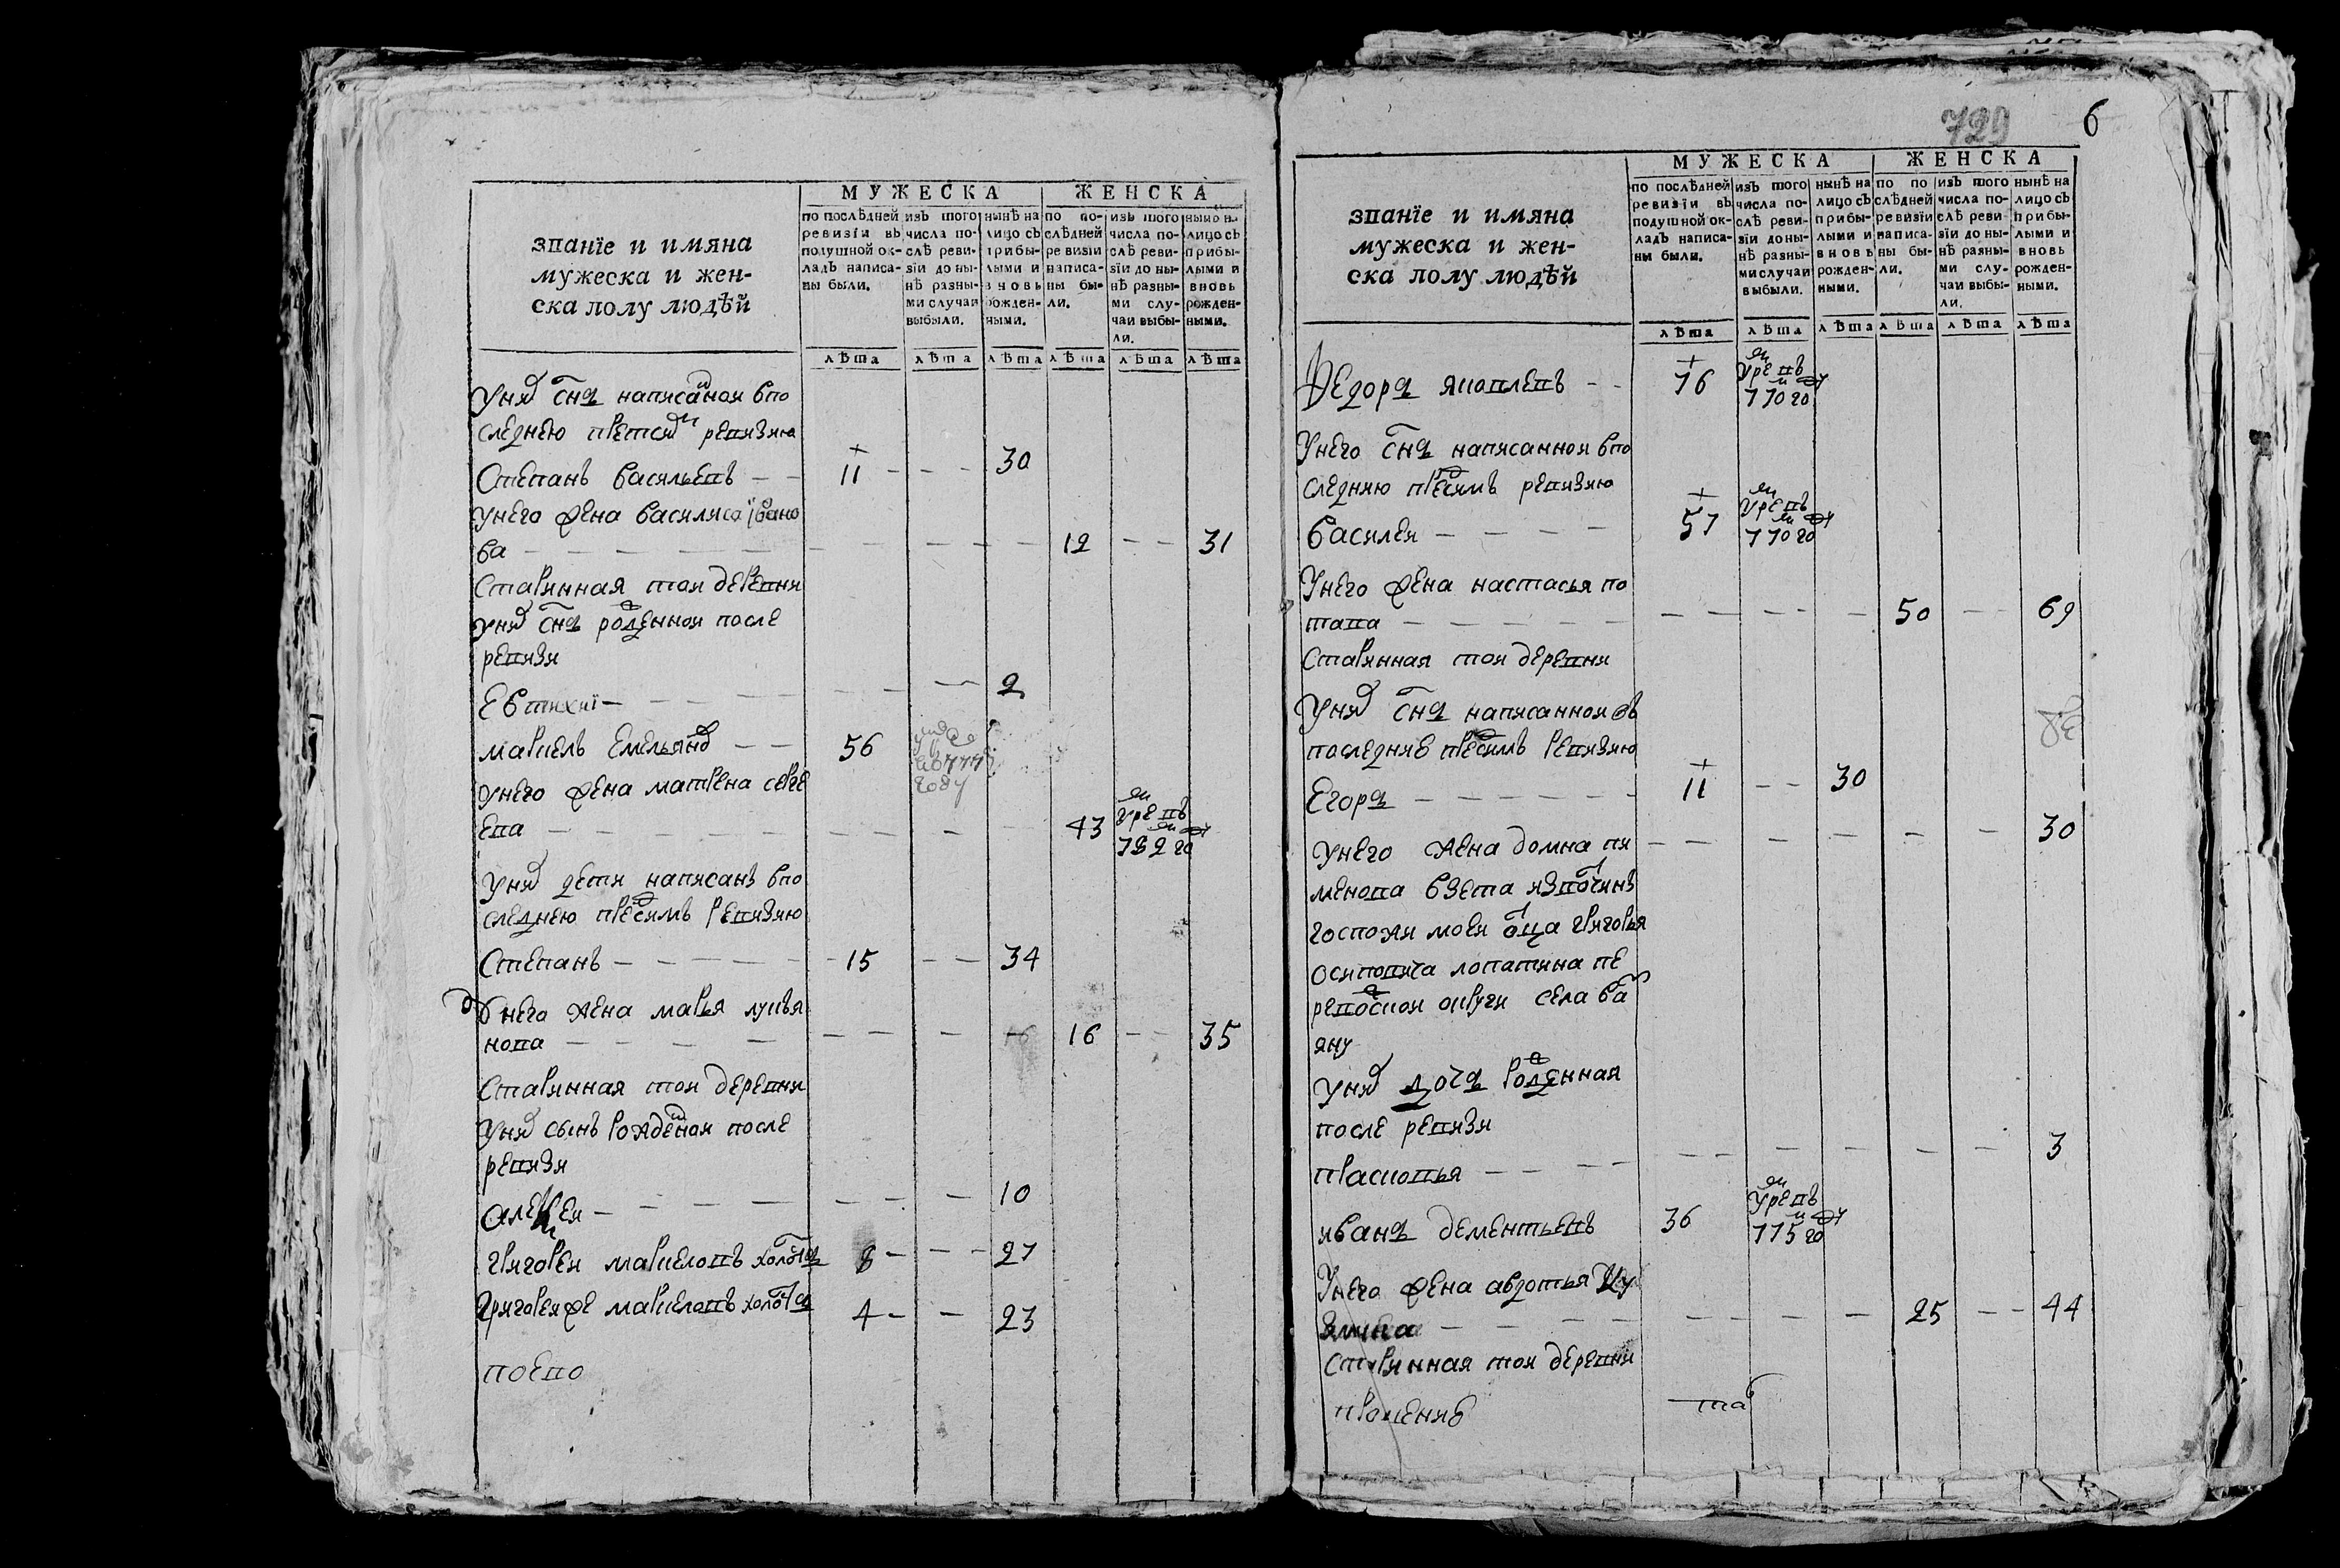 МУЖЕСКА ЖЕНСКА
званїе и имяна
мужеска и жен-
ска полу людѣй
по послѣдней ревизіи въ подушной ок-ладъ написа-ны были.
изъ того числа по-слѣ реви-зіи до ны-нѣ разны-ми случаи выбыли.
нынѣ на лицо съ прибы-лыми и вновь рожден-ными.
по по-слѣдней ревизіи написа-ны бы-ли.
изъ того числа по-слѣ реви-зіи до ны-нѣ разны-ми слу-чаи выбы-ли.
нынѣ на лицо съ прибы-лыми и вновь рожден-ными.
лѣта лѣта лѣта лѣта лѣта лѣта
Уних снъ написанои впо
следнею пре ревизию
Степанъ васильевъ 11 30
унего жена василиса iвано
ва 12 31
Старинная тои деревни
уних снъ рожденнои после
ревизи
Евтихиi 2
маркелъ емельянов 56
году
унего жена матрена серге
ева 43 умре въ 782 го
уних дети написанъ впо
следнею пре ревизию
Степанъ 15 34
Унего жена марья лукья
нова 16 35
Старинная тои деревни
уних сынъ рожденои после
ревизи
алексеи 10
григореи маркеловъ холостъ 8 27
григореи же маркеловъ холостъ 4 23
поево
729 6
МУЖЕСКА ЖЕНСКА
званїе и имяна
мужеска и жен-
ска полу людѣй
по послѣдней ревизіи въ подушной ок-ладъ написа-ны были.
изъ того числа по-слѣ реви-зіи до ны-нѣ разны-ми случаи выбыли.
нынѣ на лицо съ прибы-лыми и вновь рожден-ными.
по по-слѣдней ревизіи написа-ны бы-ли.
изъ того числа по-слѣ реви-зіи до ны-нѣ разны-ми слу-чаи выбы-ли.
нынѣ на лицо съ прибы-лыми и вновь рожден-ными.
лѣта лѣта лѣта лѣта лѣта лѣта
Федоръ яковлевъ 76 умре въ 770 го
Унего снъ написаннои впо
следнию пре ревизию
василеи 57 умре въ 770 го
Унего жена настасья по
това 50 69
Старинная тои деревни
Уних снъ написаннои въ
последние пре ревизию
Егоръ 11 30
унего жена домна пи
менова взета извотчинъ 30
госпожи моеи отца григорья
осиповича лопатина пе
округи села ва
яну
уних дочъ рожденная
после ревизи
прасковья 3
иванъ дементьевъ 36 умре въ 775 го
Унего жена авдотья ку
змина 25 44
Старинная тои деревни